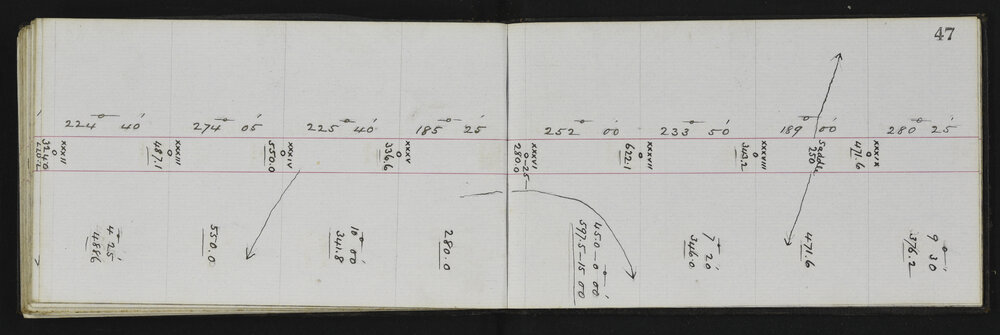 47
224° 40'
274° 05'
225° 40'
185° 25'
252° 00'
233° 50'
189° 00'
280° 25'
XXXII
324.0
XXXIII
487.1
XXXIV
550.0
XXXV
336.6
XXXVI
0-25-
280.0
XXXVII
622.1
XXXVIII
343.2
Saddle
250
XXXIX
471.6
4° 25'
488.6
550.0
10° 00'
341.8
280.0
450-0° 00'
597.5-15 00
7° 20'
346.0
471.6
9° 30'
376.2